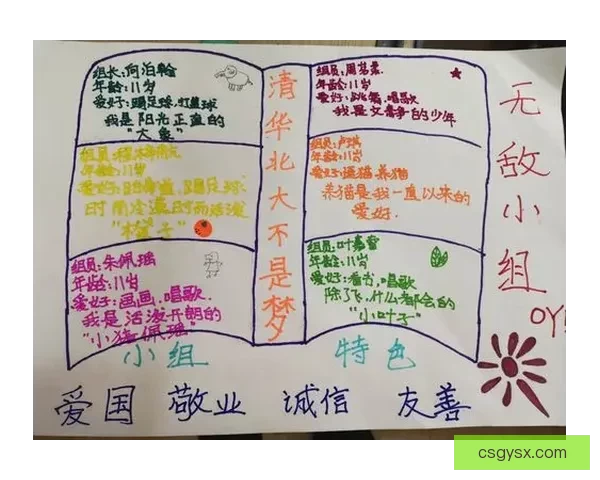 组长:向泊翰
年龄:11岁
爱好:踢足球,打篮球
我是阳光正直的
"大象"
组员:
年龄:11岁
爱好:踢足球
时而冷漠时而活泼
"橙子"
组员:朱佩瑶
年龄:11岁
爱好:画画,唱歌
我是活泼开朗的
"小猪佩瑶"
清华北大不是梦
组员:周
年龄:11岁
爱好:跳舞,唱歌
我是文静的少年
组员:卢琪
年龄:11岁
爱好:逗猫,养猫
养猫是我一直以来的
爱好.
组员:叶嘉
年龄:11岁
爱好:看书,唱歌
除了飞,什么都会的
"小叶子"
无敌小组
OY
小组 特色
爱国 敬业 诚信 友善
csgysx.com